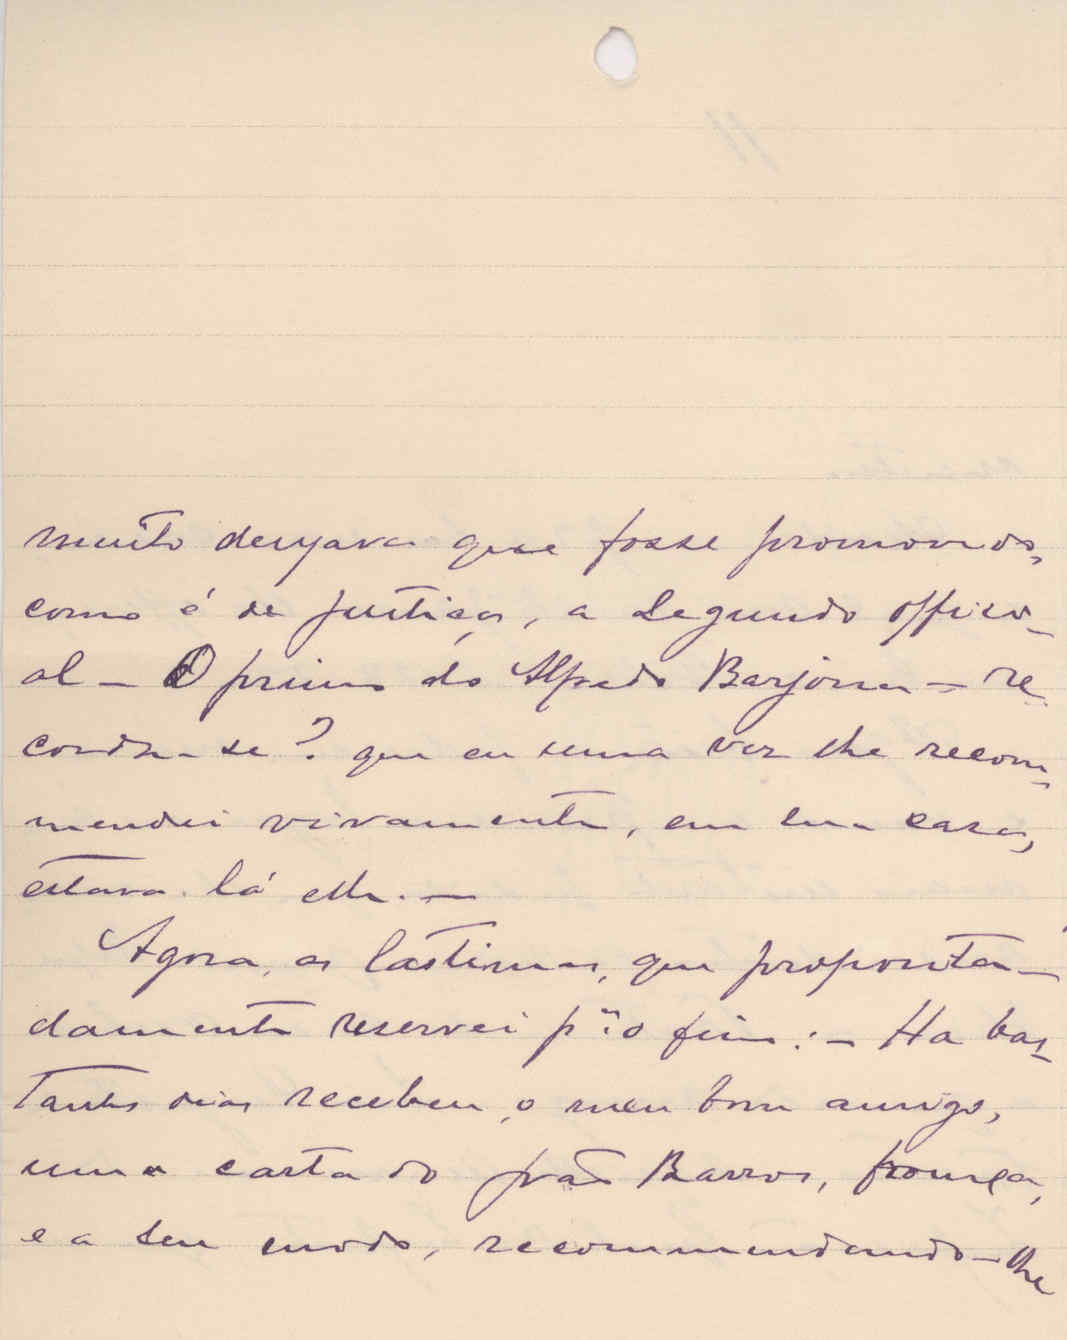 muito desejava que fosse promovido,
como é de justiça, a segundo offici-
al - O primo do Alfredo Barjona - re
corda-se? que eu uma vez lhe recom-
mendei vivamente, em sua casa,
estava lá elle. -
Agora, as lastimas, que proposita-
damente reservei p.ª o fim: - Ha bas-
tantes dias recebeu, o meu bom amigo,
uma carta do João Barros,
e a seu modo, recommendando-lhe